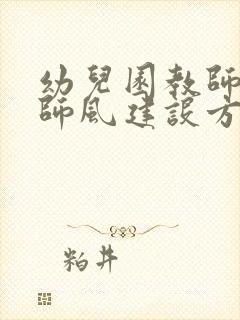 幼兒園教師
師風建設方
粕井